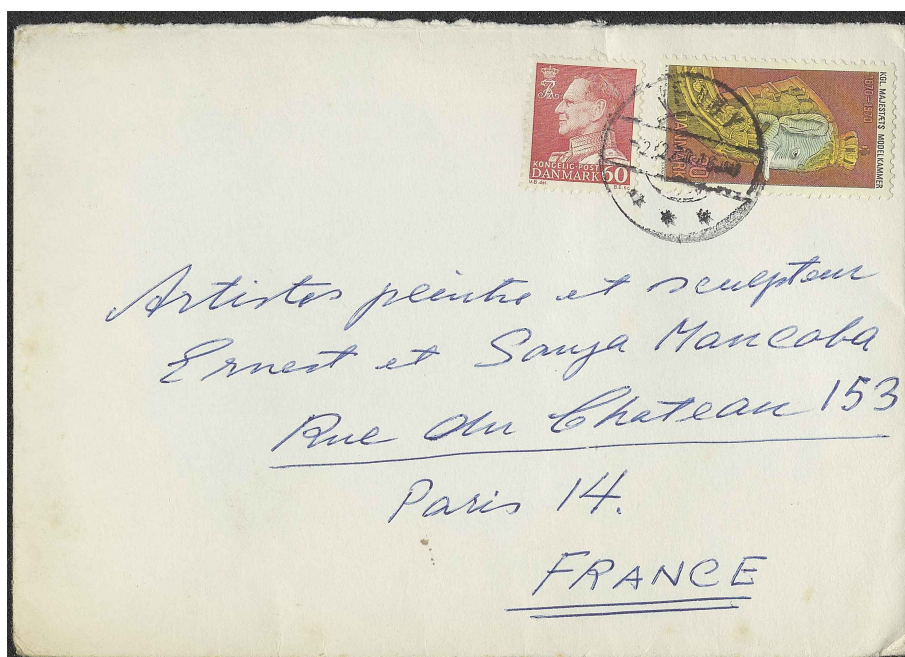 KONGELIG·POST
DANMARK 60
KGL. MAJESTÆTS MODELKAMMER
1670-1970
DANMARK
Artistes peintre et sculpteur
Ernest et Sonja Mancoba
Rue du Chateau 153
Paris 14.
FRANCE